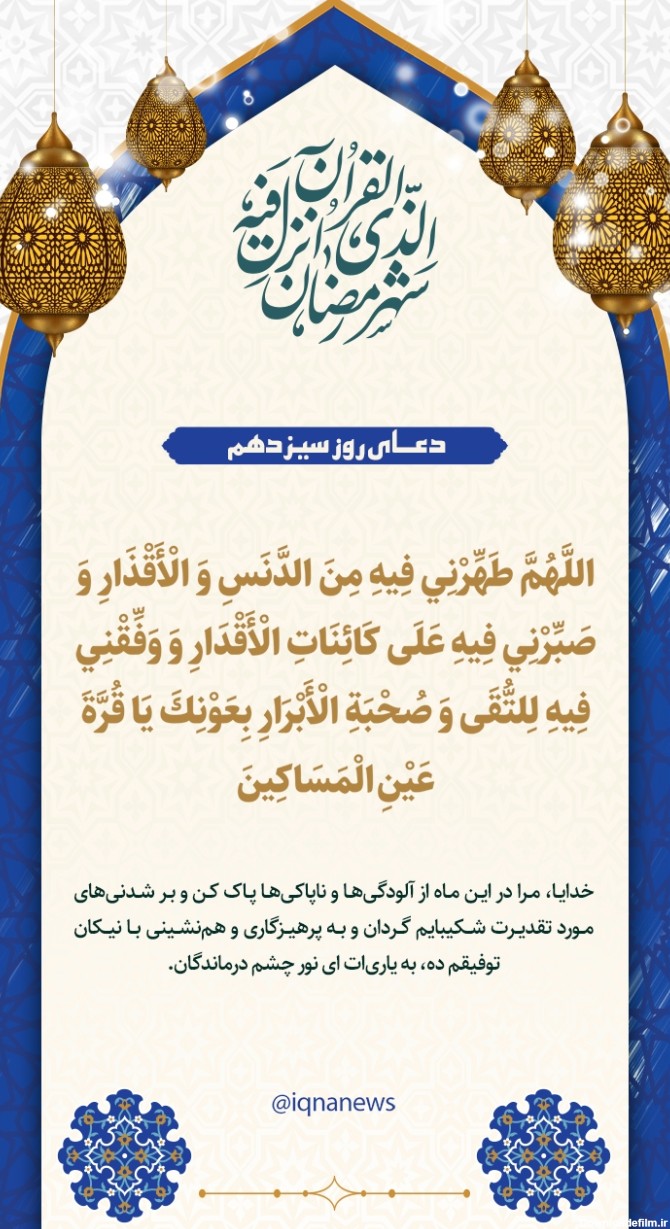 شهر رمضان الّذی اُنزل فیه القرآن
دعای روز سیزدهم
اللَّهُمَّ طَهِّرْنِي فِيهِ مِنَ الدَّنَسِ وَ الْأَقْذَارِ وَ
صَبِّرْنِي فِيهِ عَلَى كَائِنَاتِ الْأَقْدَارِ وَ وَفِّقْنِي
فِيهِ لِلتُّقَى وَ صُحْبَةِ الْأَبْرَارِ بِعَوْنِكَ يَا قُرَّةَ
عَيْنِ الْمَسَاكِينَ
خدایا، مرا در این ماه از آلودگی‌ها و ناپاکی‌ها پاک کن و بر شدنی‌های
مورد تقدیرت شکیبایم گردان و به پرهیزگاری و هم‌نشینی با نیکان
توفیقم ده، به یاری‌ات ای نور چشم درماندگان.
@iqnanews
defilm.ir